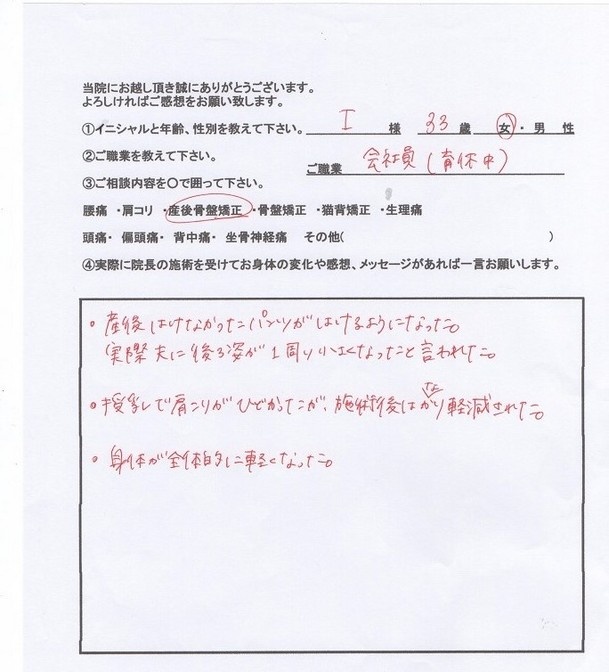 当院にお越し頂き誠にありがとうございます。
よろしければご感想をお願い致します。
①イニシャルと年齢、性別を教えて下さい。 I 様 33 歳 女・男 性
②ご職業を教えて下さい。 ご職業 会社員(育休中)
③ご相談内容を〇で囲って下さい。
腰痛 ・肩コリ ・産後骨盤矯正 ・骨盤矯正 ・猫背矯正 ・生理痛
頭痛・ 偏頭痛・ 背中痛・ 坐骨神経痛 その他( )
④実際に院長の施術を受けてお身体の変化や感想、メッセージがあれば一言お願いします。
• 産後はけなかったパンツがはけるようになった。
実際夫に後ろ姿が1周り小さくなったと言われた。
• 授乳で肩こりがひどかったが、施術後はかなり軽減された。
• 身体が全体的に軽くなった。